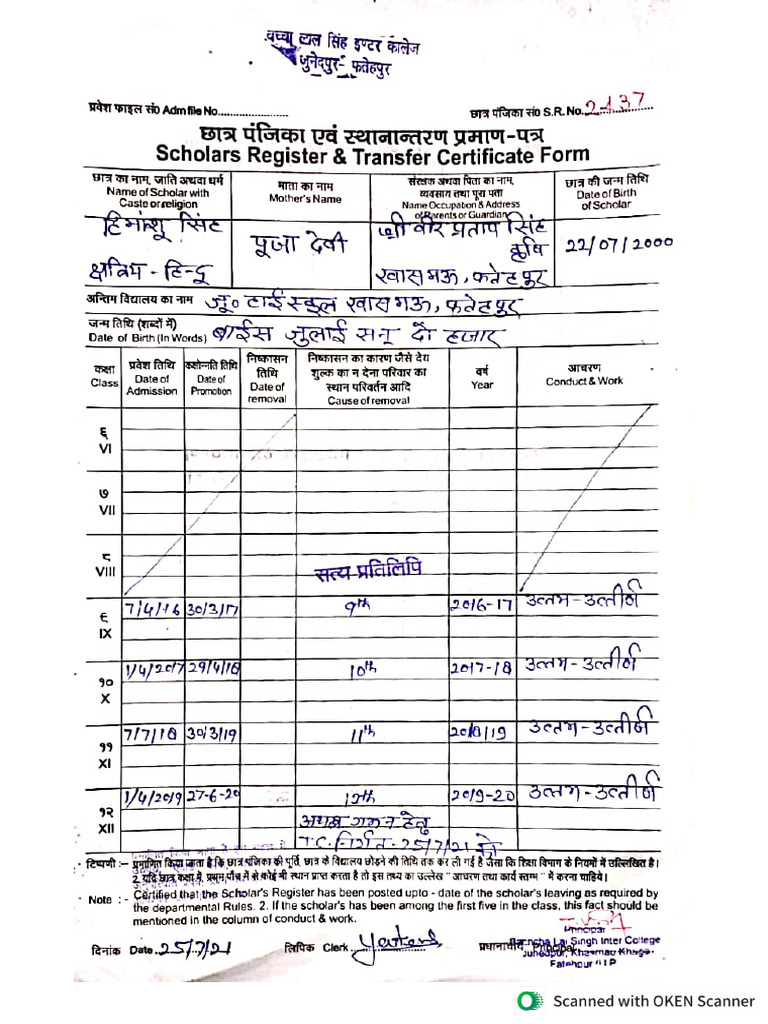 बच्चा लाल सिंह इण्टर कालेज
जुनेदपुर- फतेहपुर
प्रवेश फाइल सं० Adm file No...................
छात्र पंजिका सं० S.R. No. 2137
छात्र पंजिका एवं स्थानान्तरण प्रमाण-पत्र
Scholars Register & Transfer Certificate Form
छात्र का नाम, जाति अथवा धर्म
Name of Scholar with
Caste or religion
माता का नाम
Mother's Name
संरक्षक अथवा पिता का नाम,
व्यवसाय तथा पूरा पता
Name Occupation & Address
of Parents or Guardian
छात्र की जन्म तिथि
Date of Birth
of Scholar
हिमांशू सिंह
क्षत्रिय - हिन्दू
पूजा देवी
श्री वीर प्रताप सिंह
कृषि
खासमऊ, फतेहपुर
22/07/2000
अन्तिम विद्यालय का नाम जू० हाई स्कूल खासमऊ, फतेहपुर
जन्म तिथि (शब्दों में)
Date of Birth (In Words) बाईस जुलाई सन् दो हजार
कक्षा
Class
प्रवेश तिथि
Date of
Admission
कक्षोन्नति तिथि
Date of
Promotion
निष्कासन
तिथि
Date of
removal
निष्कासन का कारण जैसे देय
शुल्क का न देना परिवार का
स्थान परिवर्तन आदि
Cause of removal
वर्ष
Year
आचरण
Conduct & Work
६
VI
७
VII
८
VIII
सत्य प्रतिलिपि
७/4/16 30/3/17 9th 2016-17 उत्तम-उत्तीर्ण
९
IX
1/4/2017 29/4/18 10th 2017-18 उत्तम-उत्तीर्ण
१०
X
7/7/18 30/3/19 11th 2018/19 उत्तम-उत्तीर्ण
११
XI
1/4/2019 27-6-20 12th 2019-20 उत्तम-उत्तीर्ण
१२
XII
अन्यत्र गमन हेतु
T.C. निर्गत - 25/7/21 को
टिप्पणी :- प्रमाणित किया जाता है कि छात्र पंजिका की पूर्ति, छात्र के विद्यालय छोड़ने की तिथि तक कर ली गई है जैसा कि शिक्षा विभाग के नियमों में उल्लिखित है।
2. यदि छात्र कक्षा में, प्रथम पाँच में से कोई भी स्थान प्राप्त करता है तो इस तथ्य का उल्लेख " आचरण तथा कार्य स्तम्भ " में करना चाहिये।
Note :- Certified that the Scholar's Register has been posted upto - date of the scholar's leaving as required by
the departmental Rules. 2. If the scholar's has been among the first five in the class, this fact should be
mentioned in the column of conduct & work.
दिनांक Date 25/7/21 लिपिक Clerk प्रधानाचार्य Principal
Principal
Lal Singh Inter College
Junedpur, Khasmau Khaga
Fatehpur U.P
Scanned with OKEN Scanner